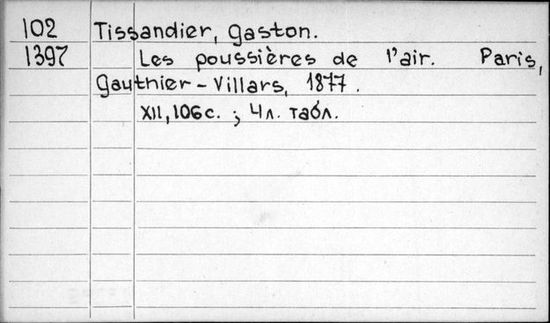 102 Tissandier, Gaston.
1397 Les poussières de l'air. Paris,
Gauthier-Villars, 1877.
XII, 106с. ; 4л. табл.